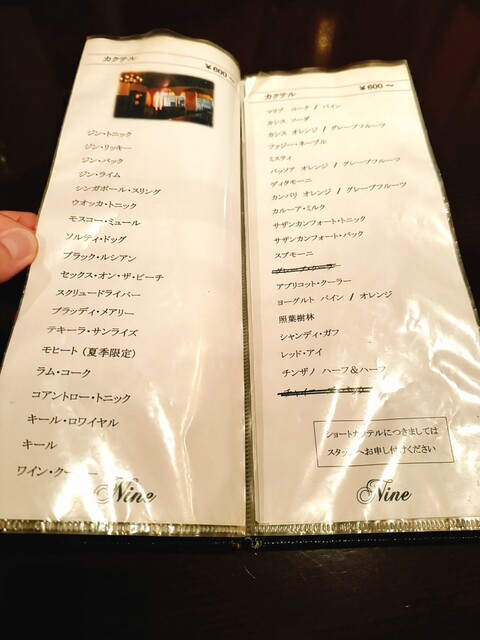 カクテル
￥600～
ジン・トニック
ジン・リッキー
ジン・バック
ジン・ライム
シンガポール・スリング
ウオッカ・トニック
モスコー・ミュール
ソルティ・ドッグ
ブラック・ルシアン
セックス・オン・ザ・ビーチ
スクリュードライバー
ブラッディ・メアリー
テキーラ・サンライズ
モヒート（夏季限定）
ラム・コーク
コアントロー・トニック
キール・ロワイヤル
キール
ワイン・クーラー
Nine
カクテル
￥600～
マリブ コーク / パイン
カシス ソーダ
カシス オレンジ / グレープフルーツ
ファジー・ネーブル
ミスティ
パッソア オレンジ / グレープフルーツ
ディタモーニ
カンパリ オレンジ / グレープフルーツ
カルーア・ミルク
サザンカンフォート・トニック
サザンカンフォート・バック
スプモーニ
アプリコット・クーラー
ヨーグルト パイン / オレンジ
照葉樹林
シャンディ・ガフ
レッド・アイ
チンザノ ハーフ＆ハーフ
ショートカクテルにつきましては
スタッフへお申し付けください
Nine